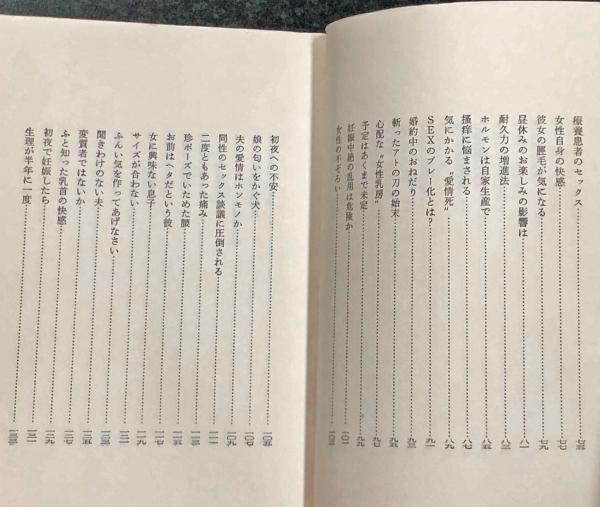 療養患者のセックス……七五
女性自身の快感……七七
彼女の悪毛が気になる……七九
昼休みのお楽しみの影響は……八一
耐久力の増進法……八三
ホルモンは自家生産で……八五
搔痒に悩まされる……八七
気にかかる〝愛情死〟……八九
SEXのプレー化とは？……九一
婚約中のおねだり……九三
斬ったアトの刀の始末……九五
心配な〝女性乳房〟……九七
予定はあくまで未定……九九
妊娠中絶の乱用は危険か……一〇一
女性の不ぞろい……一〇三
初夜への不安……一〇五
娘の匂いをかぐ犬……一〇七
夫の愛情はホンモノか……一〇九
同性のセックス談議に圧倒される……一一一
二度ともあった痛み……一一三
珍ポーズでいためた腰……一一五
お前はヘタだという彼……一一七
女に興味ない息子……一一九
サイズが合わない……一二一
ふんい気を作ってあげなさい……一二三
聞きわけのない夫……一二五
変質者ではないか……一二七
ふと知った乳首の快感……一二九
初夜で妊娠したら……一三一
生理が半年に一度……一三三